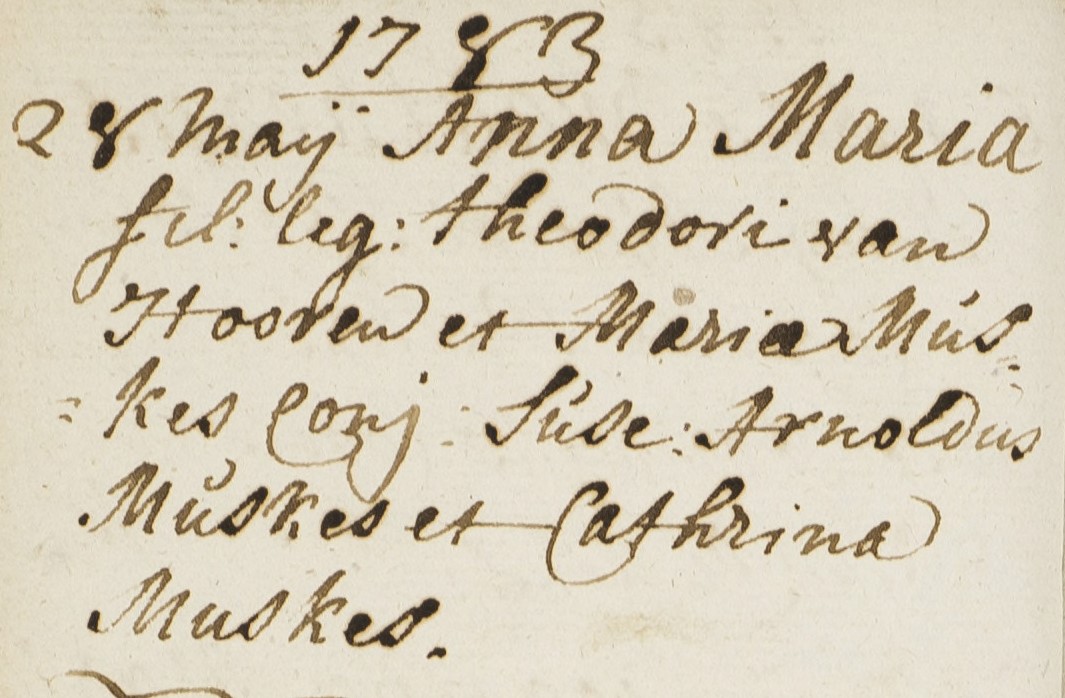 1783
28 maÿ Anna Maria
fil: leg: theodori van
Hooren et Mariæ Mús-
=kes Conj: Súsc: Arnoldus
Múskes et Cathrina
Muskes.